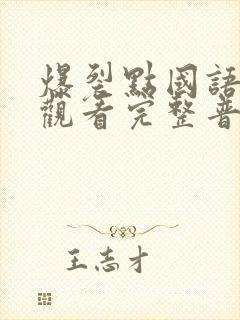 爆裂點國語
觀看完整普
王志才